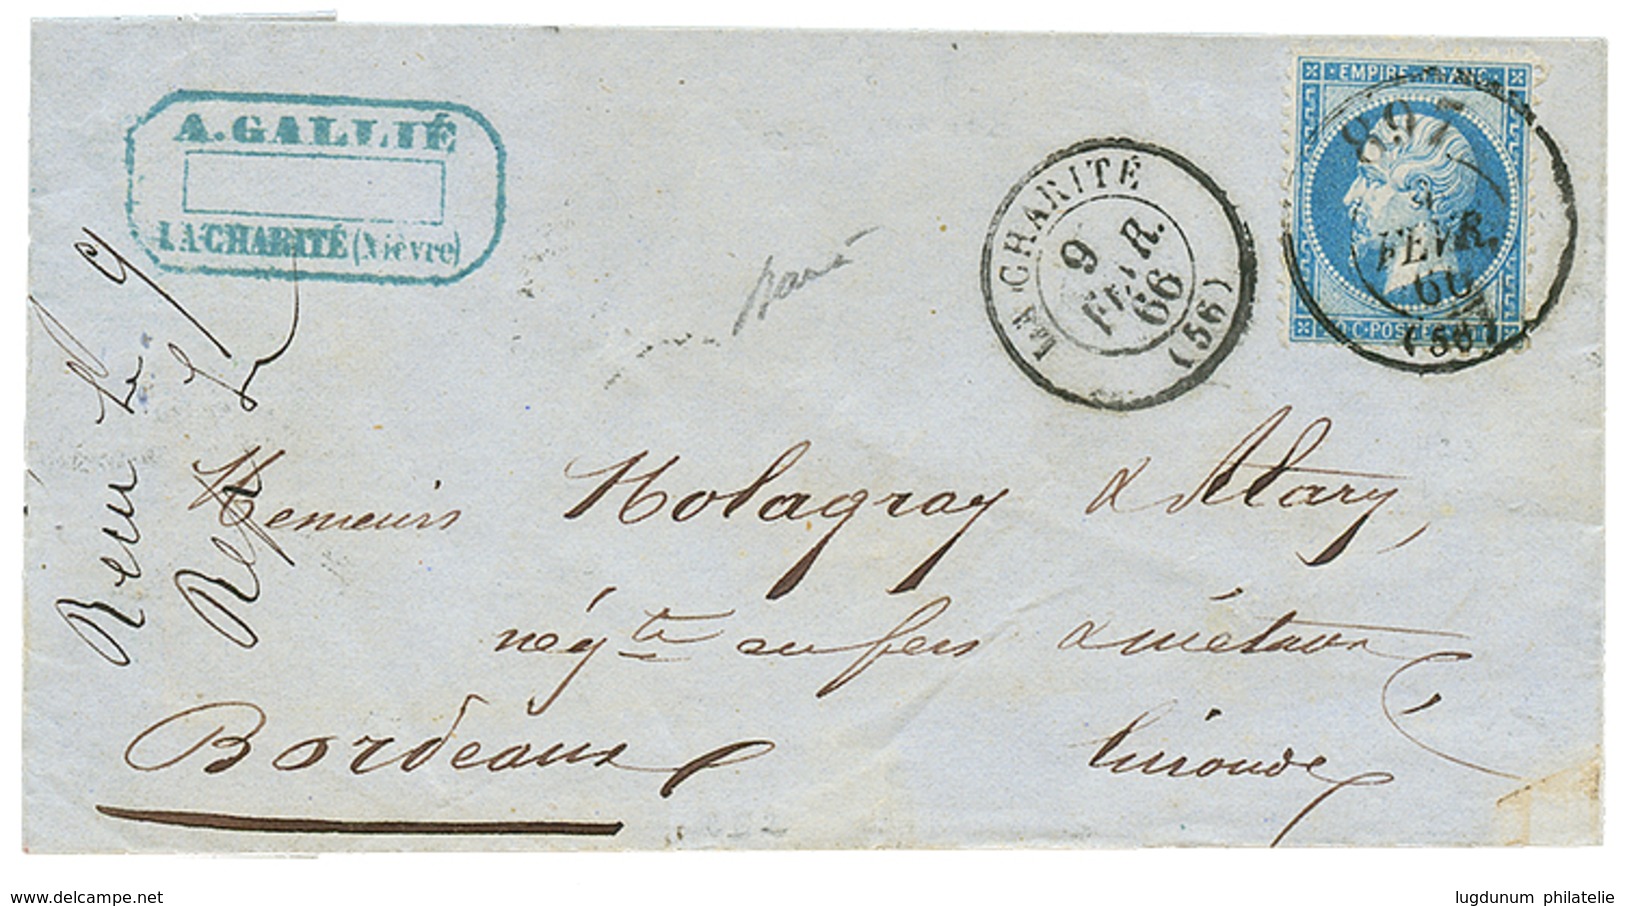 A. GALLIÉ
LA CHARITÉ (Nièvre)
LA CHARITÉ
9
FEVR.
66
(56)
EMPIRE FRANC
897
FEVR.
66
Messieurs Molagray & Alary,
négts en fers & métaux
Bordeaux
Gironde
delcampe.net
lugdunum philatelie